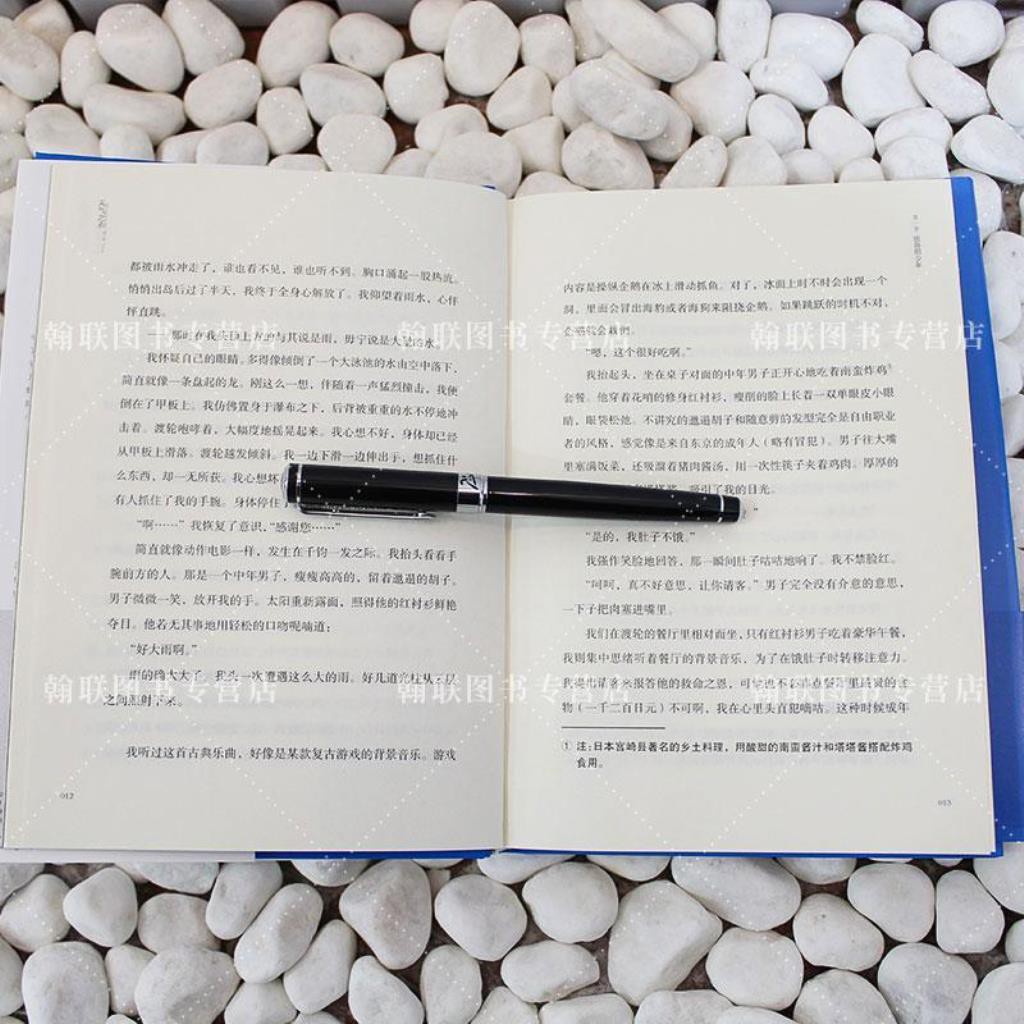 天气之子
都被雨水冲走了，谁也看不见，谁也听不到。胸口涌起一股热流。
悄悄出岛后过了半天，我终于全身心解放了。我仰望着雨水，心怦
怦直跳。
我怀疑自己的眼睛。多得像倾倒了一个大泳池的水由空中落下，
简直就像一条盘起的龙。刚这么一想，伴随着一声猛烈撞击，我便
倒在了甲板上。我仿佛置身于瀑布之下，后背被重重的水不停地冲
击着。渡轮咆哮着，大幅度地摇晃起来。我心想不好，身体却已经
从甲板上滑落。渡轮越发倾斜。我一边下滑一边伸出手，想抓住什
么东西，却一无所获。我心想坏
有人抓住了我的手腕。身体停住
“啊……”我恢复了意识，“感谢您……”
简直就像动作电影一样，发生在千钧一发之际。我抬头看看手
腕前方的人。那是一个中年男子，瘦瘦高高的，留着邋遢的胡子。
男子微微一笑，放开我的手。太阳重新露面，照得他的红衬衫鲜艳
夺目。他若无其事地用轻松的口吻呢喃道：
“好大雨啊。”
雨的确大大了。我头一次遭遇这么大的雨。好几道光柱从云层
之间照射下来。
我听过这首古典乐曲，好像是某款复古游戏的背景音乐。游戏
012
内容是操纵企鹅在冰上滑动抓鱼。对了，冰面上时不时会出现一个
洞，里面会冒出海豹或者海狗来阻挠企鹅。如果跳跃的时机不对，
“嗯，这个很好吃啊。”
我抬起头，坐在桌子对面的中年男子正开心地吃着南蛮炸鸡①
套餐。他穿着花哨的修身红衬衫，瘦削的脸上长着一双单眼皮小眼
睛，眼袋松弛。不讲究的邋遢胡子和随意剪的发型完全是自由职业
者的风格，感觉像是来自东京的成年人（略有冒犯）。男子往大嘴
里塞满饭菜，还吸溜着猪肉酱汤，用一次性筷子夹着鸡肉。厚厚的
吸引了我的目光。
“是的，我肚子不饿。”
我强作笑脸地回答，那一瞬间肚子咕咕地响了。我不禁脸红。
“呵呵，真不好意思，让你请客。”男子完全没有介意的意思，
一下子把肉塞进嘴里。
我们在渡轮的餐厅里相对而坐，只有红衬衫男子吃着豪华午餐，
我则集中思绪听着餐厅的背景音乐，为了在饿肚子时转移注意力。
物（一千二百日元）不可啊，我在心里头直犯嘀咕。这种时候成年
① 注：日本宫崎县著名的乡土料理，用酸甜的南蛮酱汁和塔塔酱搭配炸鸡
食用。
013
翰联图书专营店
翰联图书专营店
翰联图书专营店
翰联图书专营店
翰联图书专营店
翰联图书专营店